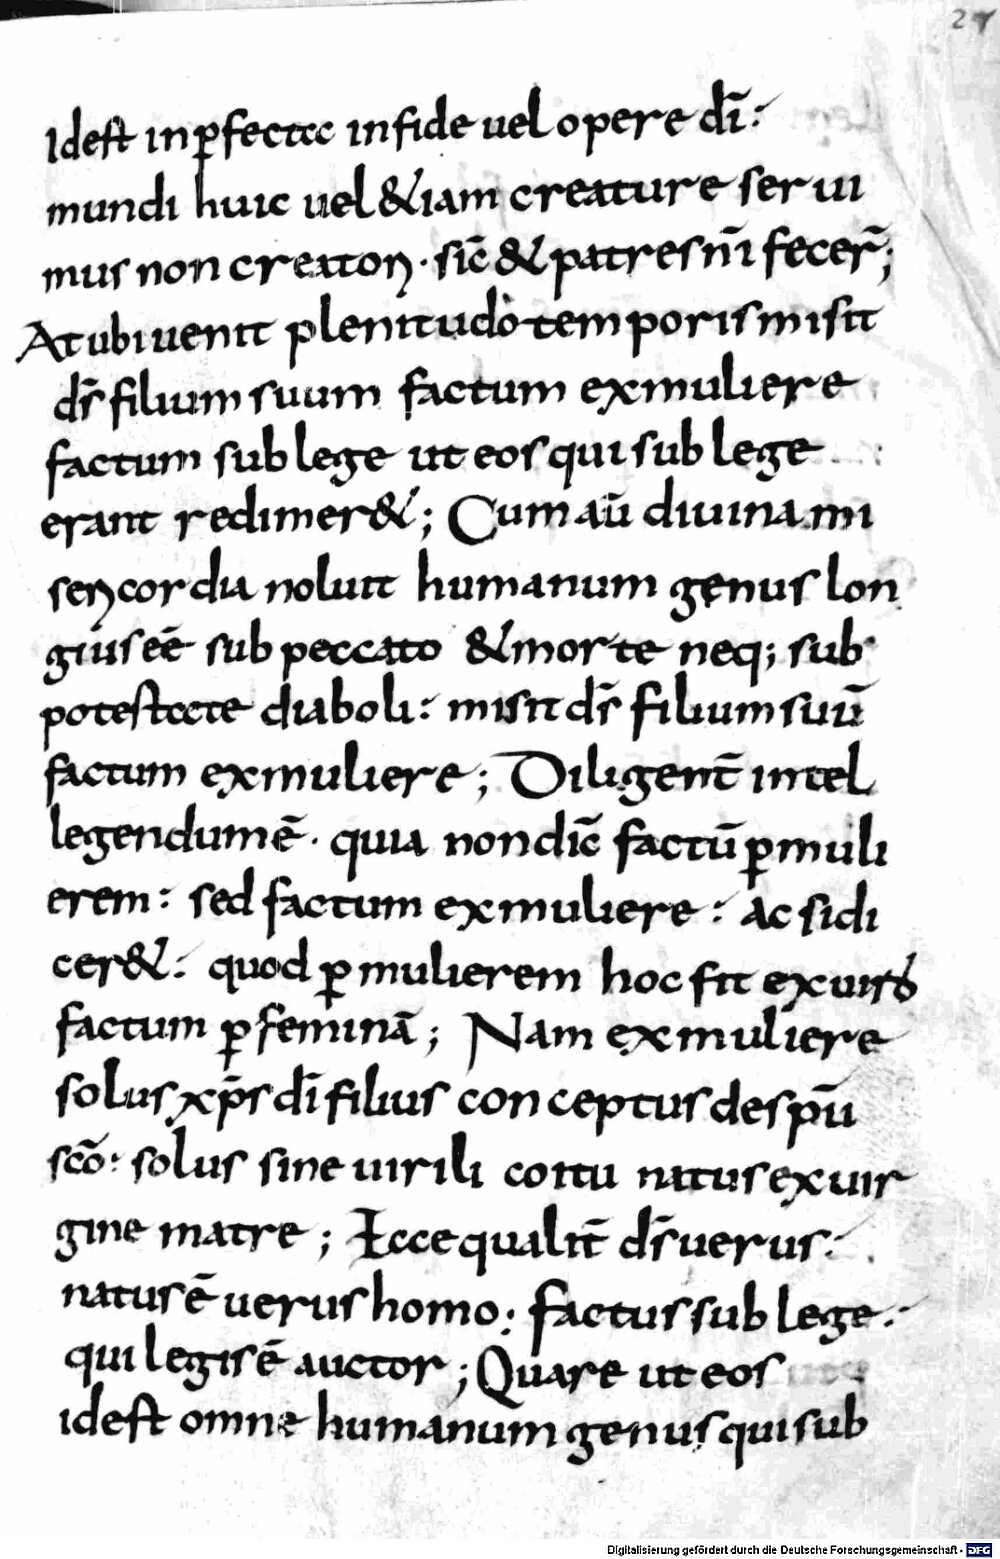 27
Idest inꝑfecti infide uel opere dī:
mundi huic uel &iam creature serui
mus non creatori · sic̄ & patres nr̄i fecer̄;
At ubi uenit plenitudo temporis misit
dr̄ filium suum factum exmuliere
factum sub lege ut eos qui sub lege
erant redimer&; Cum aū diuina mi
sericordia noluit humanum genus lon
gius eē sub peccato & morte neq; sub
potestate diaboli: misit ds̄ filium suū
factum exmuliere; Diligent̄ intel
legendum ē · quia non dic̄ factū ꝑ muli
erem: sed factum exmuliere: ac si di
cer&: quod ꝑ mulierem hoc fit exuiro
factum ꝑ feminā; Nam exmuliere
solus xp̄s dī filius conceptus de spū
scō: solus sine uirili coitu natus ex uir
gine matre; Ecce qualit̄ ds̄ uerus:
natus ē uerus homo: factus sub lege:
qui legis ē auctor; Quare ut eos
idest omne humanum genus qui sub
Digitalisierung gefördert durch die Deutsche Forschungsgemeinschaft - DFG